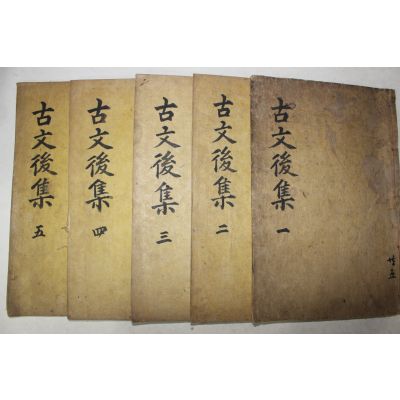 古文後集 一
古文後集 二
古文後集 三
古文後集 四
古文後集 五